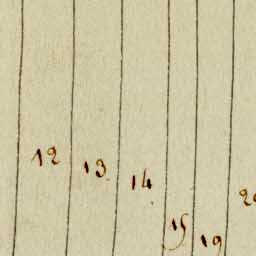 12 13 14 15 19